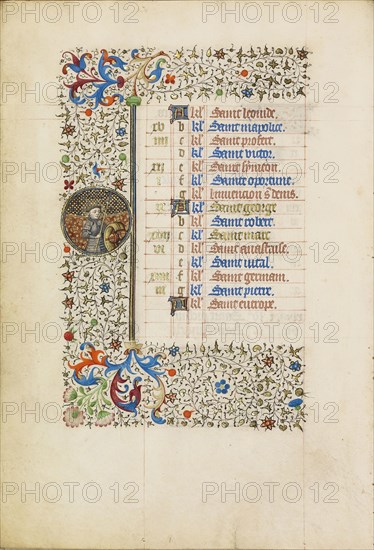 A kl' Saint leonide.
xv b kl' Saint mapolice.
iiii c kl' Saint profect.
d kl' Saint victor.
xii e kl' Saint symeon.
i f kl' Saint oportune.
g kl' Invencion s' denis.
ix A kl' Saint george
b kl' Saint robert.
xvii c kl' Saint marc
vi d kl' Saint anastaise.
e kl' Saint vital.
xiiii f kl' Saint germain.
iii g kl' Saint pierre.
A kl' Saint eutrope.